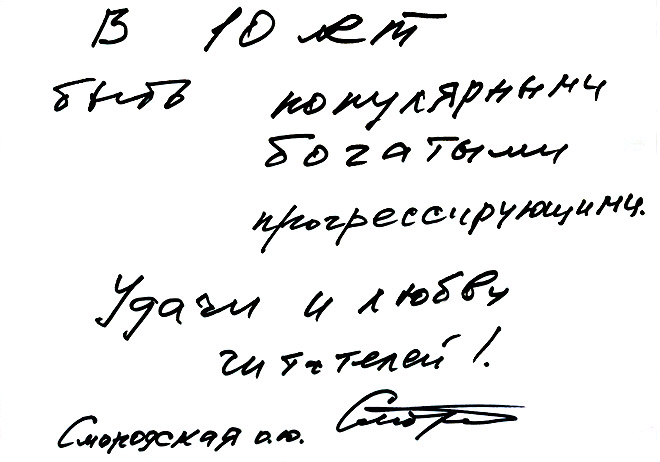 В 10 лет
быть популярными
богатыми
прогрессирующими.
Удачи и любви
читателей!
Смородская О.Ю.